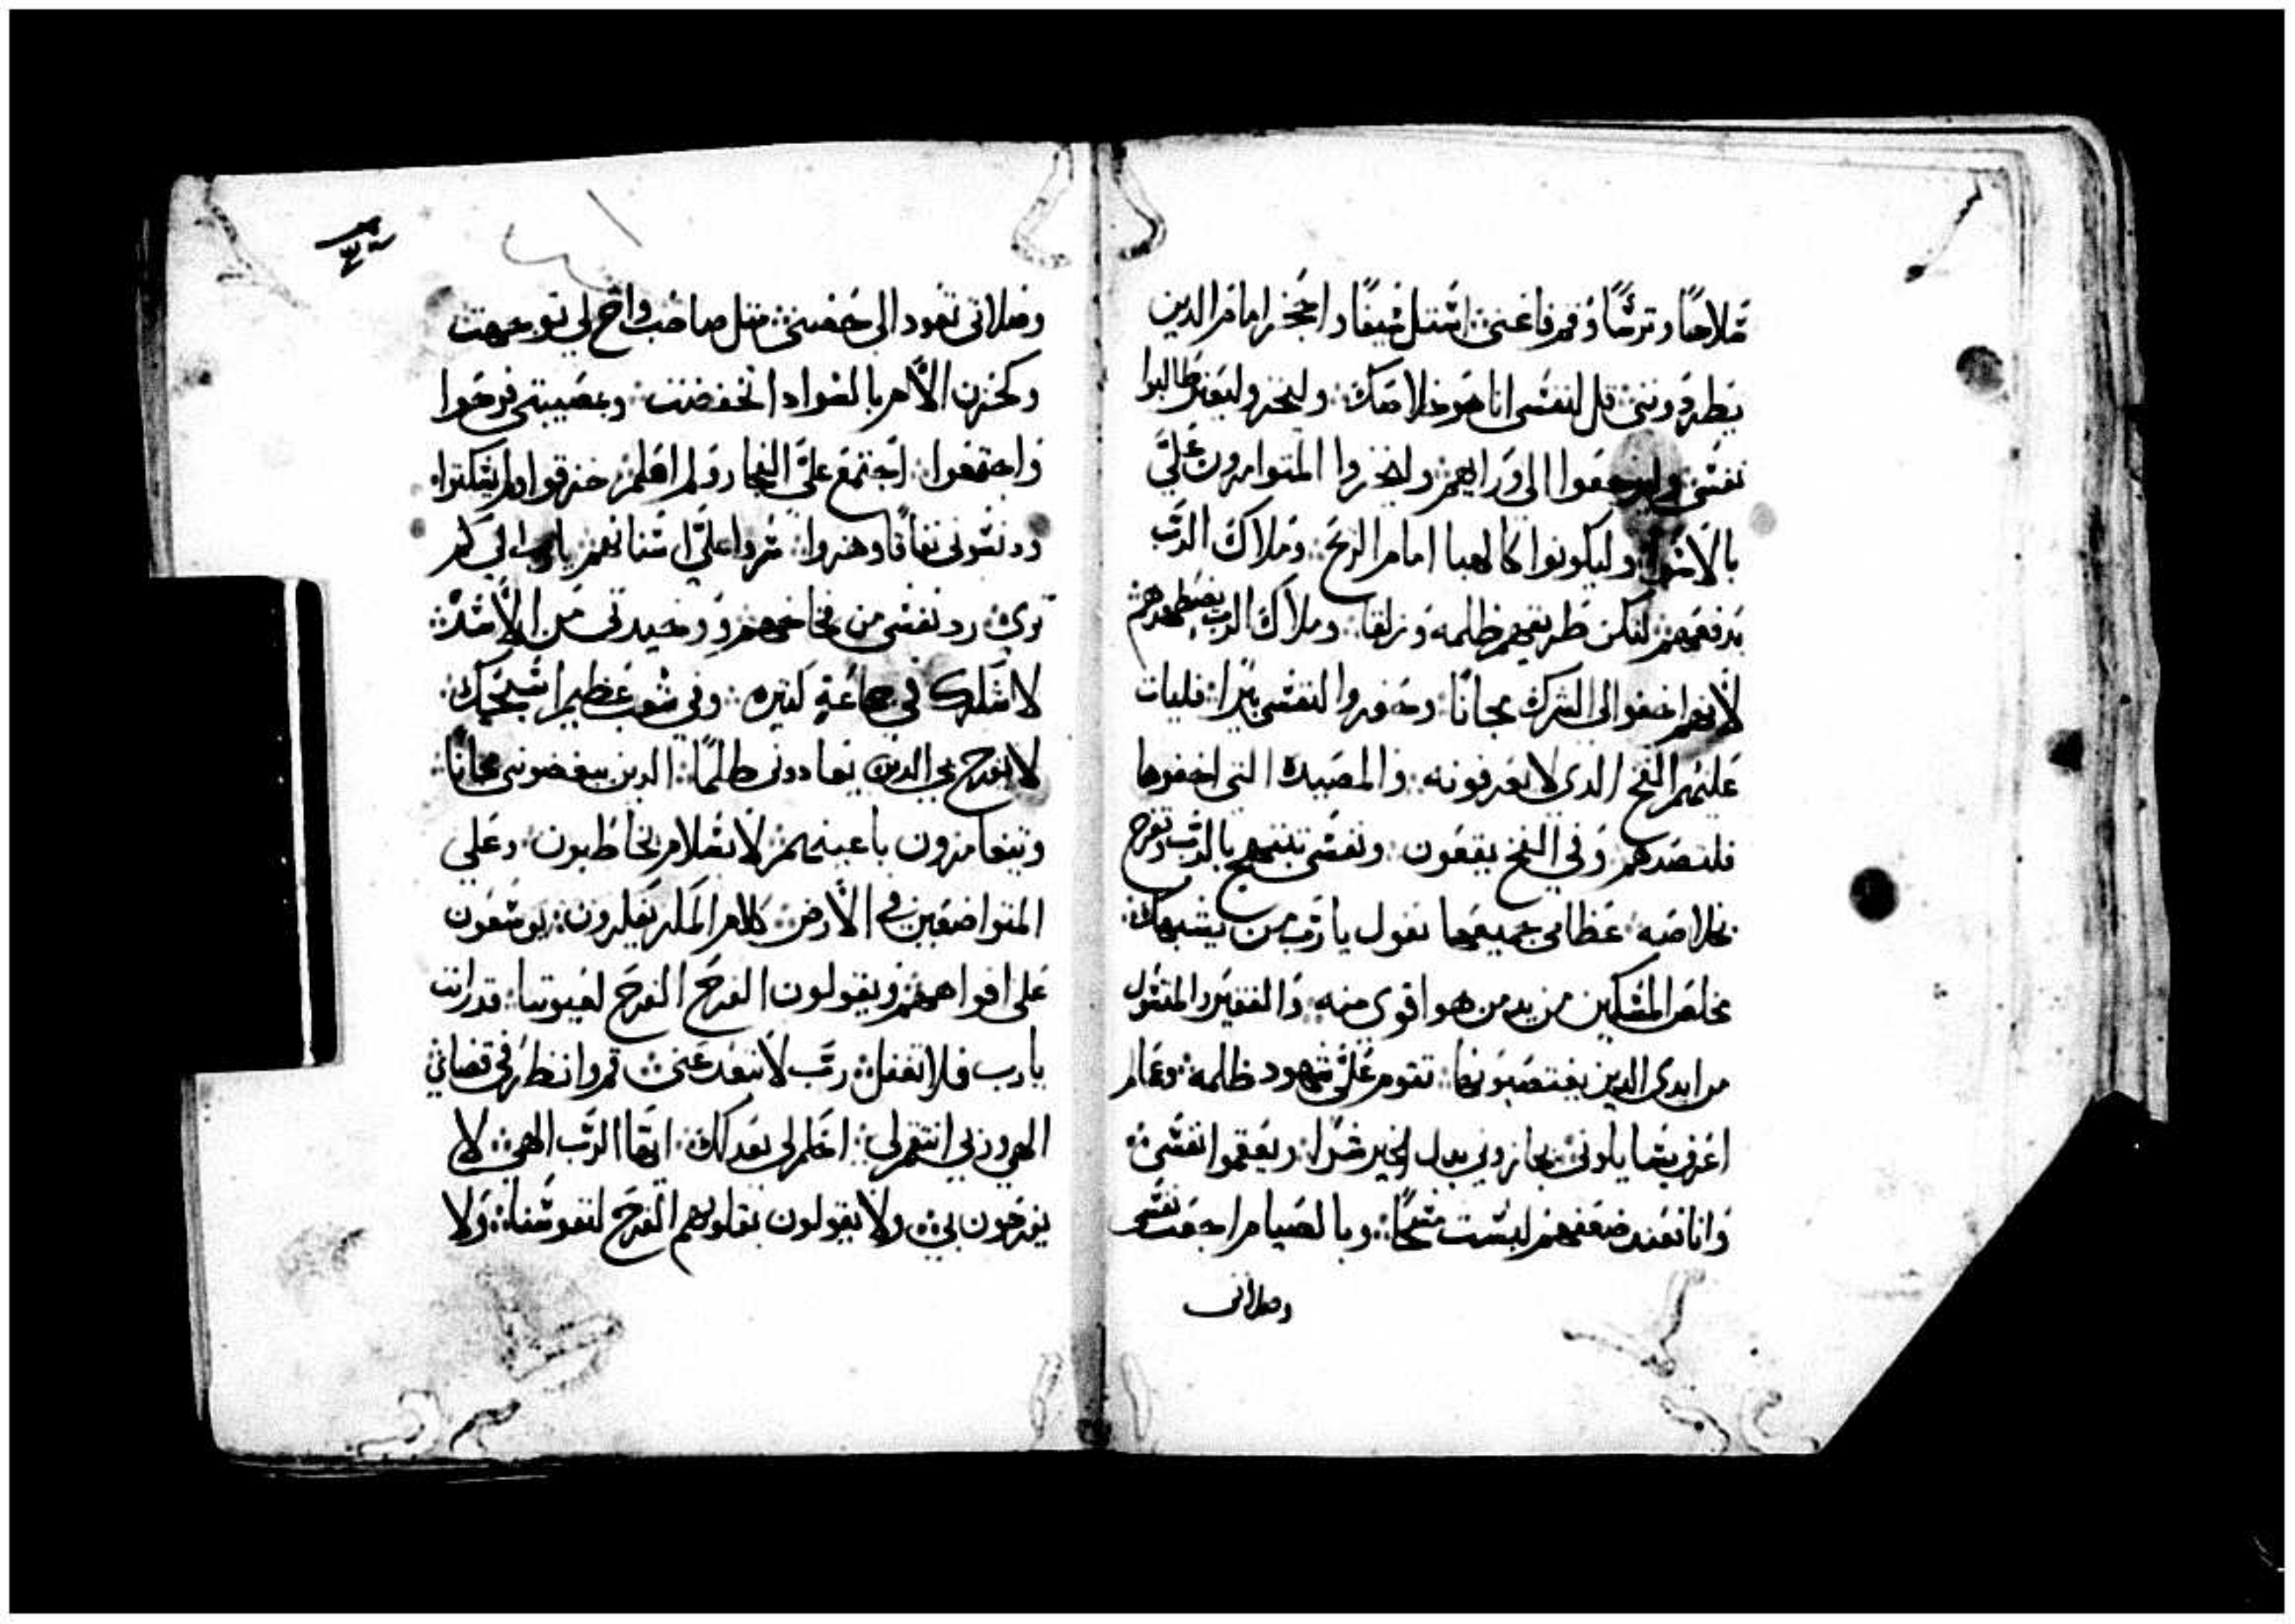 سلاحًا وترسًا وقم فاعني استل سيفًا واحجز امام الدين
يطردونني قل لنفسي انا هو خلاصك وليخز وليفتر طالبوا
نفسي وليرجعوا الى ورايهم وليخزوا المتوامرون عليّ
بالاسوا وليكونوا كالهبا امام الريح وملاك الرب
يدفعهم لتكن طريقهم ظلمه وزلقا وملاك الرب يضطهدهم
لانهم اخفوا لي الشرك مجانًا وحفروا لنفسي بيرًا فليات
عليهم الفخ الدى لا يعرفونه والمصيده التي اخفوها
فلتصدهم وفي الفخ يقعون ونفسي تبتهج بالرب وتفرح
بخلاصه عظامي جميعها تقول يا رب من يشبهك
مخلص المسكين من يد من هو اقوى منه والفقير والمسول
من ايدى الدين يغتصبونها تقوم عليّ شهود ظلمه وعالم
اعرف يسايلوني يجازوني بدل الخير شرًا ويعقموا نفسي
وانا فعند ضعفهم لبست مسحًا وبالصيام اجعت نفسي
وصلاتى
وصلاتى تعود الى حضني مثل صاحب واخ لي توجهت
وكحزن الامر بالفواد انخفضت وبمصيبتي فرحوا
واجتمعوا اجتمع عليّ الفجار ولم اعلم خزقوا ولم يسكتوا
ودنسوني نفاقا وهزوا صروا عليّ اسنانهم يا رب الى كم
ترى رد نفسي من فخاخهم ووحيدتى من الاسد
لاشكرك في جماعةٍ كتيره وفي شعب عظيم اسبحك
لا يفرح بي الدين يعادوني ظلمًا الدين يبغضوني مجانًا
ويتغامزون باعينهم لا بسلام يخاطبون وعلي
المتواضعين في الارض كلام المكر يفكرون يوسعون
على افواههم ويقولون الفرح الفرح لعيوننا قد رات
يا رب فلا تغفل رب لا تبعد عني قم وانظر في قضائي
الهي وربي انتقم لي احكم لي بعدلك ايها الرب الهي لا
يفرحون بي ولا يقولون بقلوبهم الفرح لنفوسنا ولا